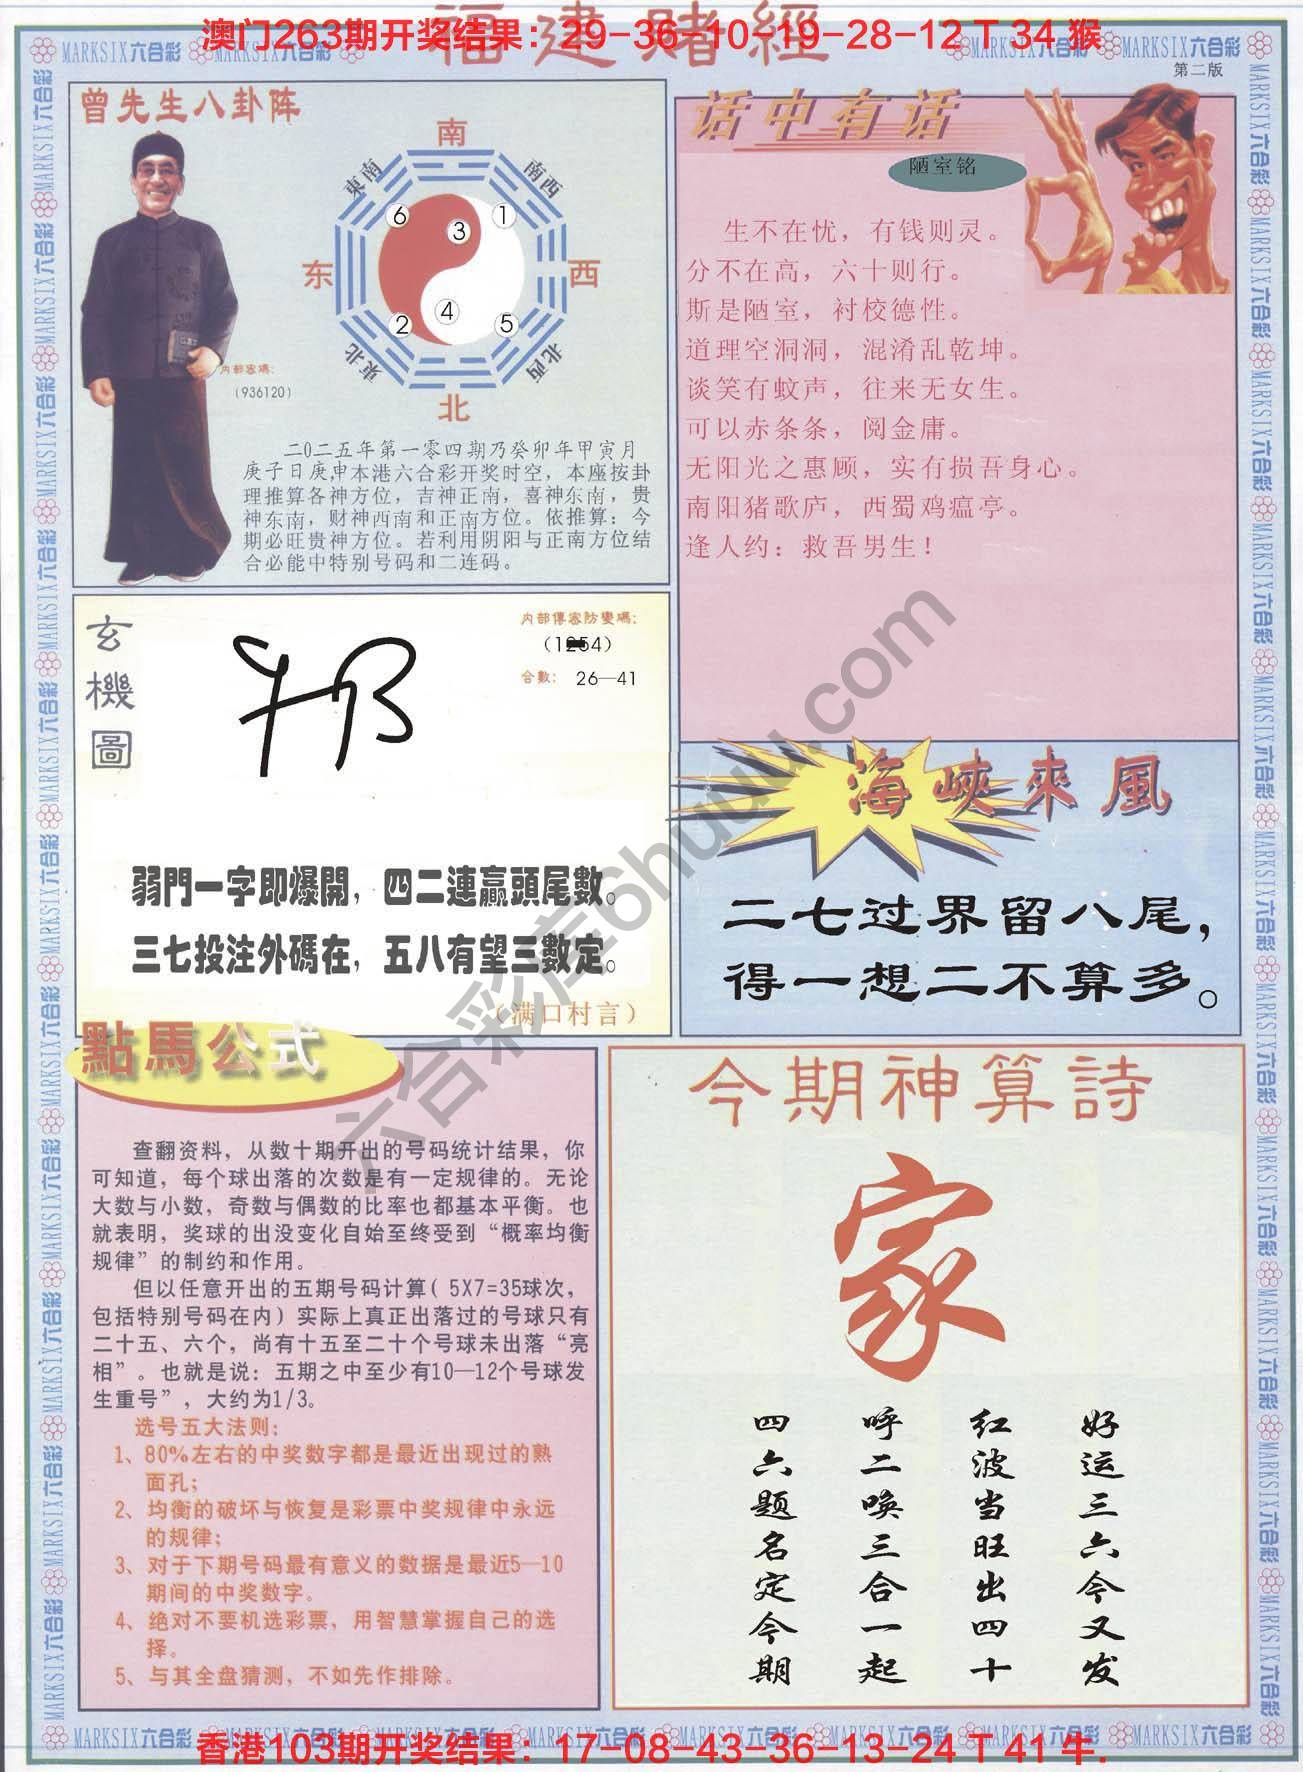 澳门263期开奖结果：29-36-10-19-28-12 T 34 猴
福建赌經
MARKSIX六合彩
第二版
曾先生八卦阵
南
東南
南西
6
3
1
东
西
4
2
5
東北
北西
北
内部密碼：
(936120)
二0二五年第一零四期乃癸卯年甲寅月
庚子日庚申本港六合彩开奖时空，本座按卦
理推算各神方位，吉神正南，喜神东南，贵
神东南，财神西南和正南方位。依推算：今
期必旺贵神方位。若利用阴阳与正南方位结
合必能中特别号码和二连码。
话中有话
陋室铭
生不在忧，有钱则灵。
分不在高，六十则行。
斯是陋室，衬校德性。
道理空洞洞，混淆乱乾坤。
谈笑有蚊声，往来无女生。
可以赤条条，阅金庸。
无阳光之惠顾，实有损吾身心。
南阳猪歌庐，西蜀鸡瘟亭。
逢人约：救吾男生！
玄機圖
内部傳密防變碼：
合數： 26—41
弱門一字即爆開，四二連贏頭尾數。
三七投注外碼在，五八有望三數定。
（满口村言）
海峽來風
二七过界留八尾，
得一想二不算多。
點馬公式
查翻资料，从数十期开出的号码统计结果，你
可知道，每个球出落的次数是有一定规律的。无论
大数与小数，奇数与偶数的比率也都基本平衡。也
就表明，奖球的出没变化自始至终受到“概率均衡
规律”的制约和作用。
但以任意开出的五期号码计算( 5X7=35球次，
包括特别号码在内）实际上真正出落过的号球只有
二十五、六个，尚有十五至二十个号球未出落“亮
相”。也就是说：五期之中至少有10—12个号球发
生重号”，大约为1/3。
选号五大法则：
1、80%左右的中奖数字都是最近出现过的熟
面孔；
2、均衡的破坏与恢复是彩票中奖规律中永远
的规律；
3、对于下期号码最有意义的数据是最近5—10
期间的中奖数字。
4、绝对不要机选彩票，用智慧掌握自己的选
择。
5、与其全盘猜测，不如先作排除。
今期神算詩
家
好运三六今又发
红波当旺出四十
呼二唤三合一起
四六题名定今期
六合彩库6huuu.com
香港103期开奖结果：17-08-43-36-13-24 T 41 牛.